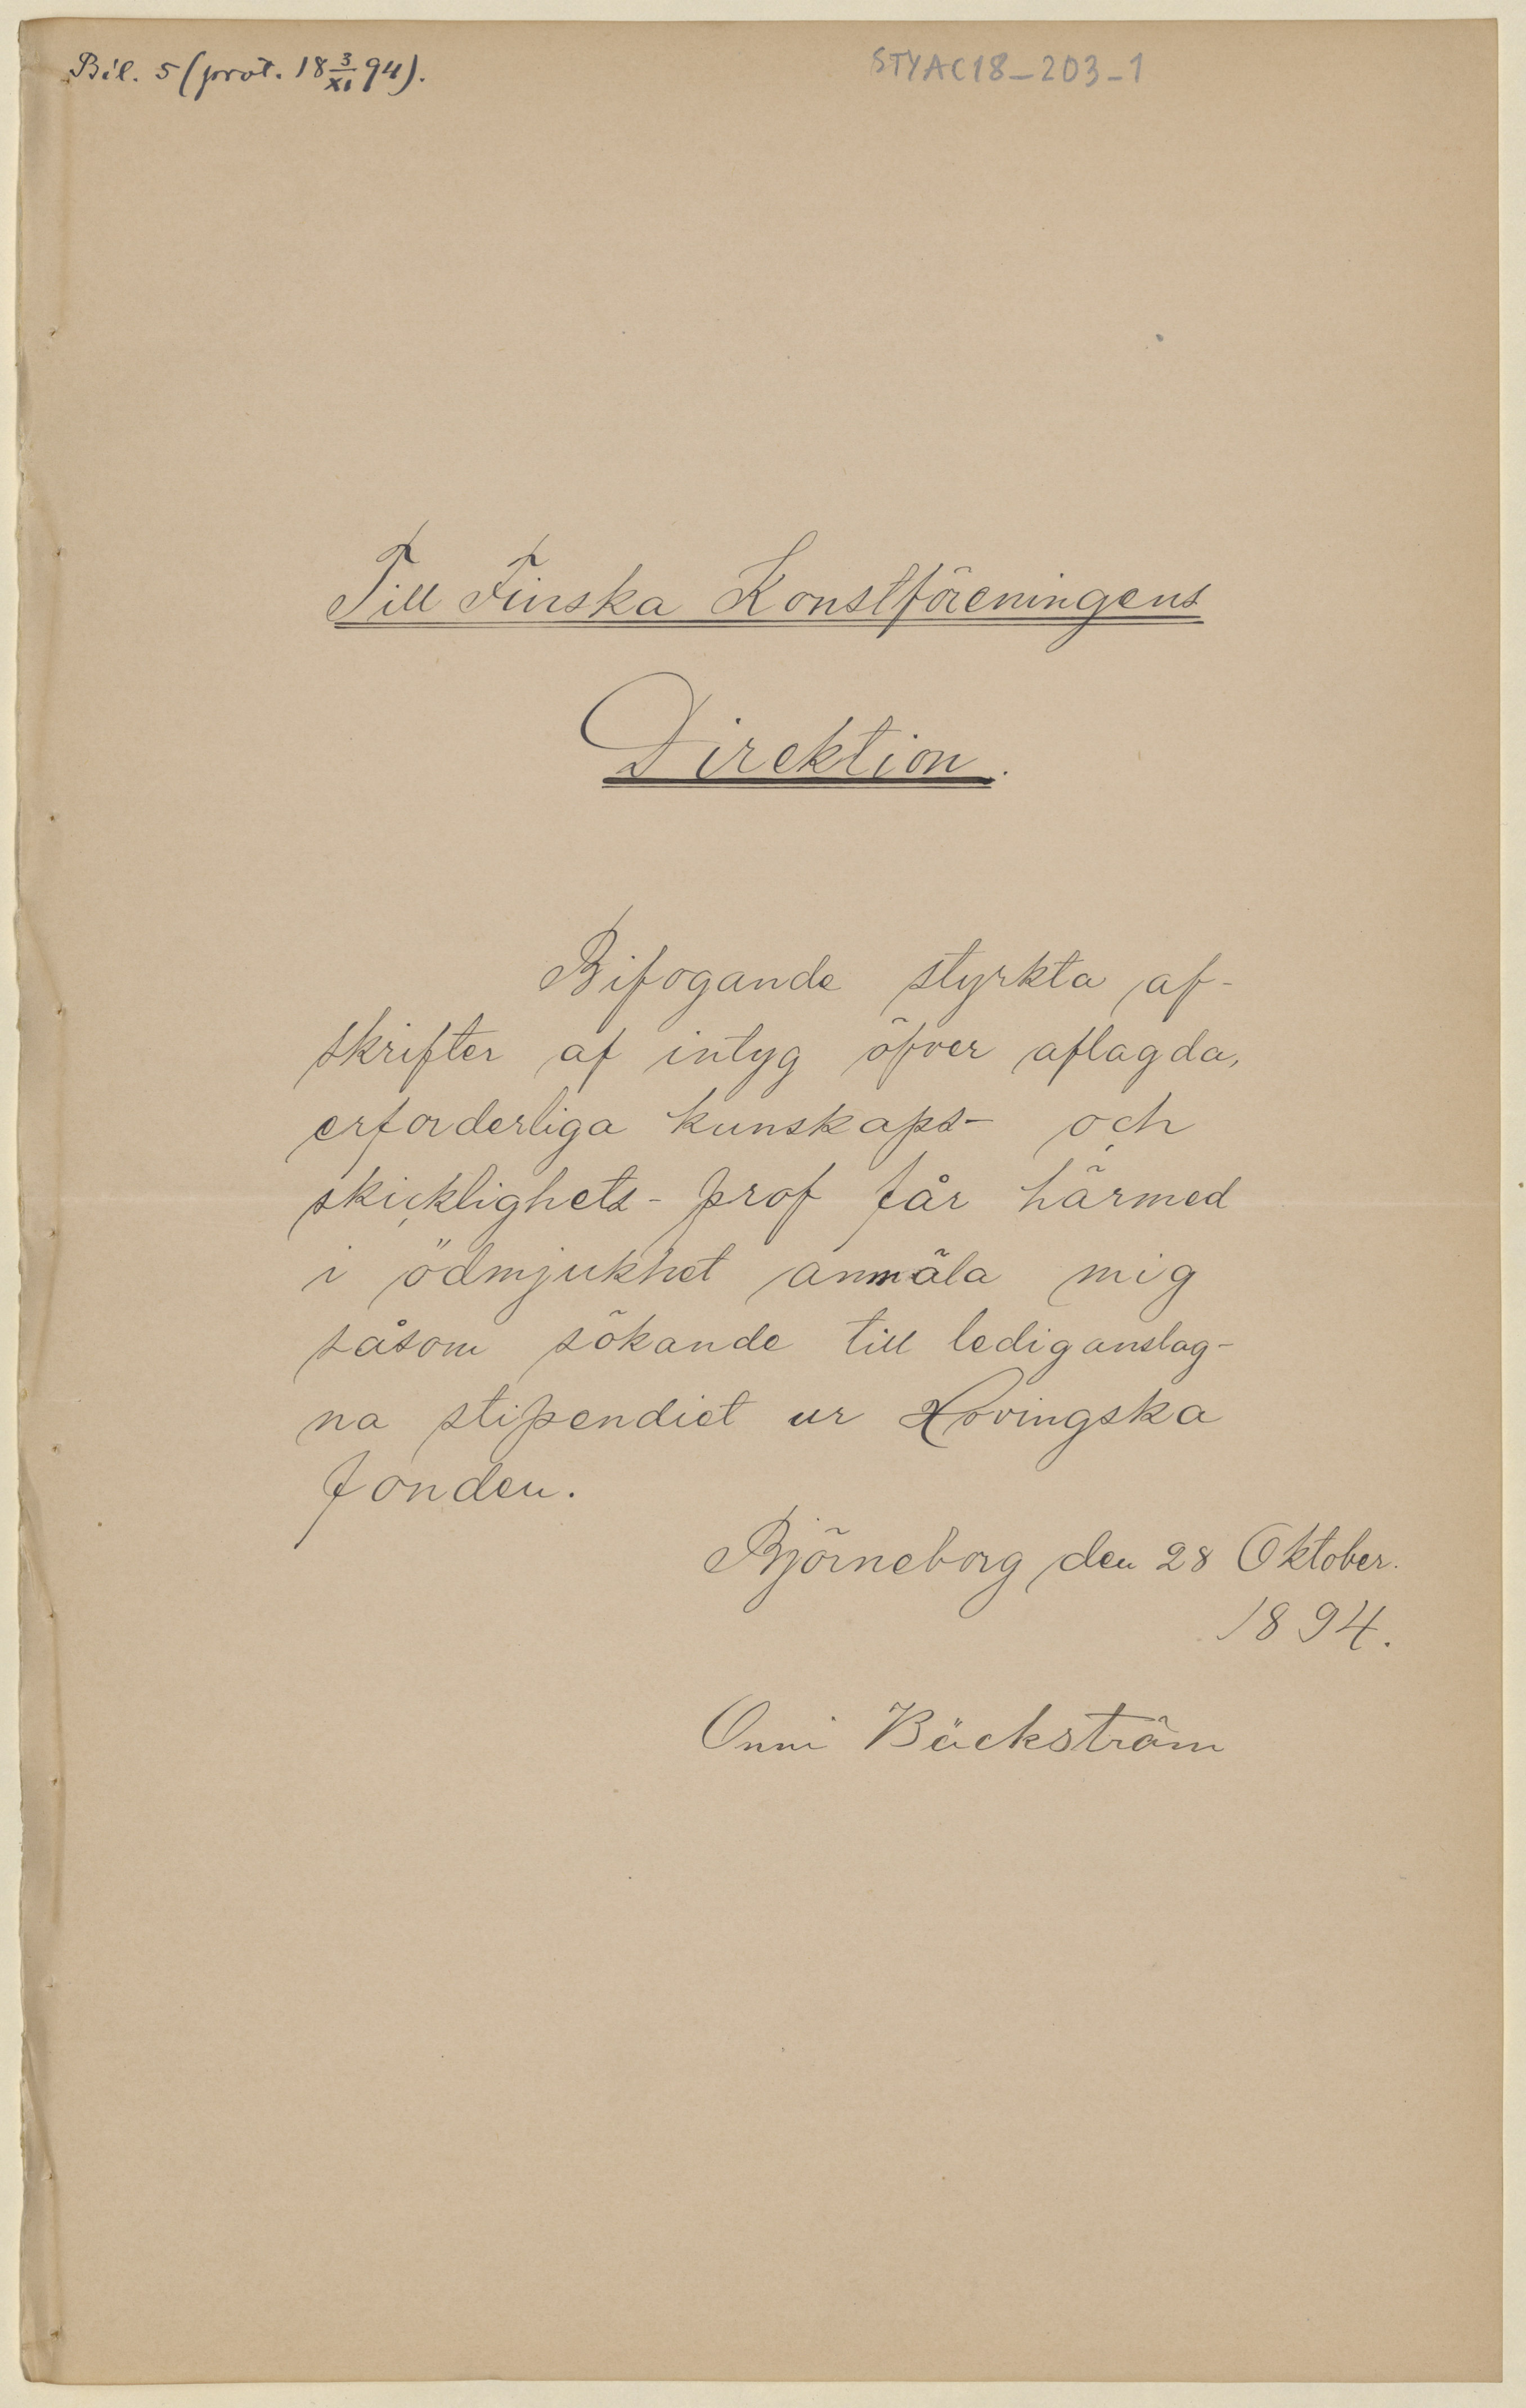 Bil. 5 (prot. 18 3/XI 94).
STYAC18_203_1
Till Finska Konstföreningens
Direktion.
Bifogande styrkta af-
skrifter af intyg öfver aflagda,
erforderliga kunskaps- och
skicklighets-prof får härmed
i ödmjukhet anmäla mig
såsom sökande till lediganslag-
na stipendiet ur Hovingska
fonden.
Björneborg den 28 Oktober.
1894.
Onni Bäckström